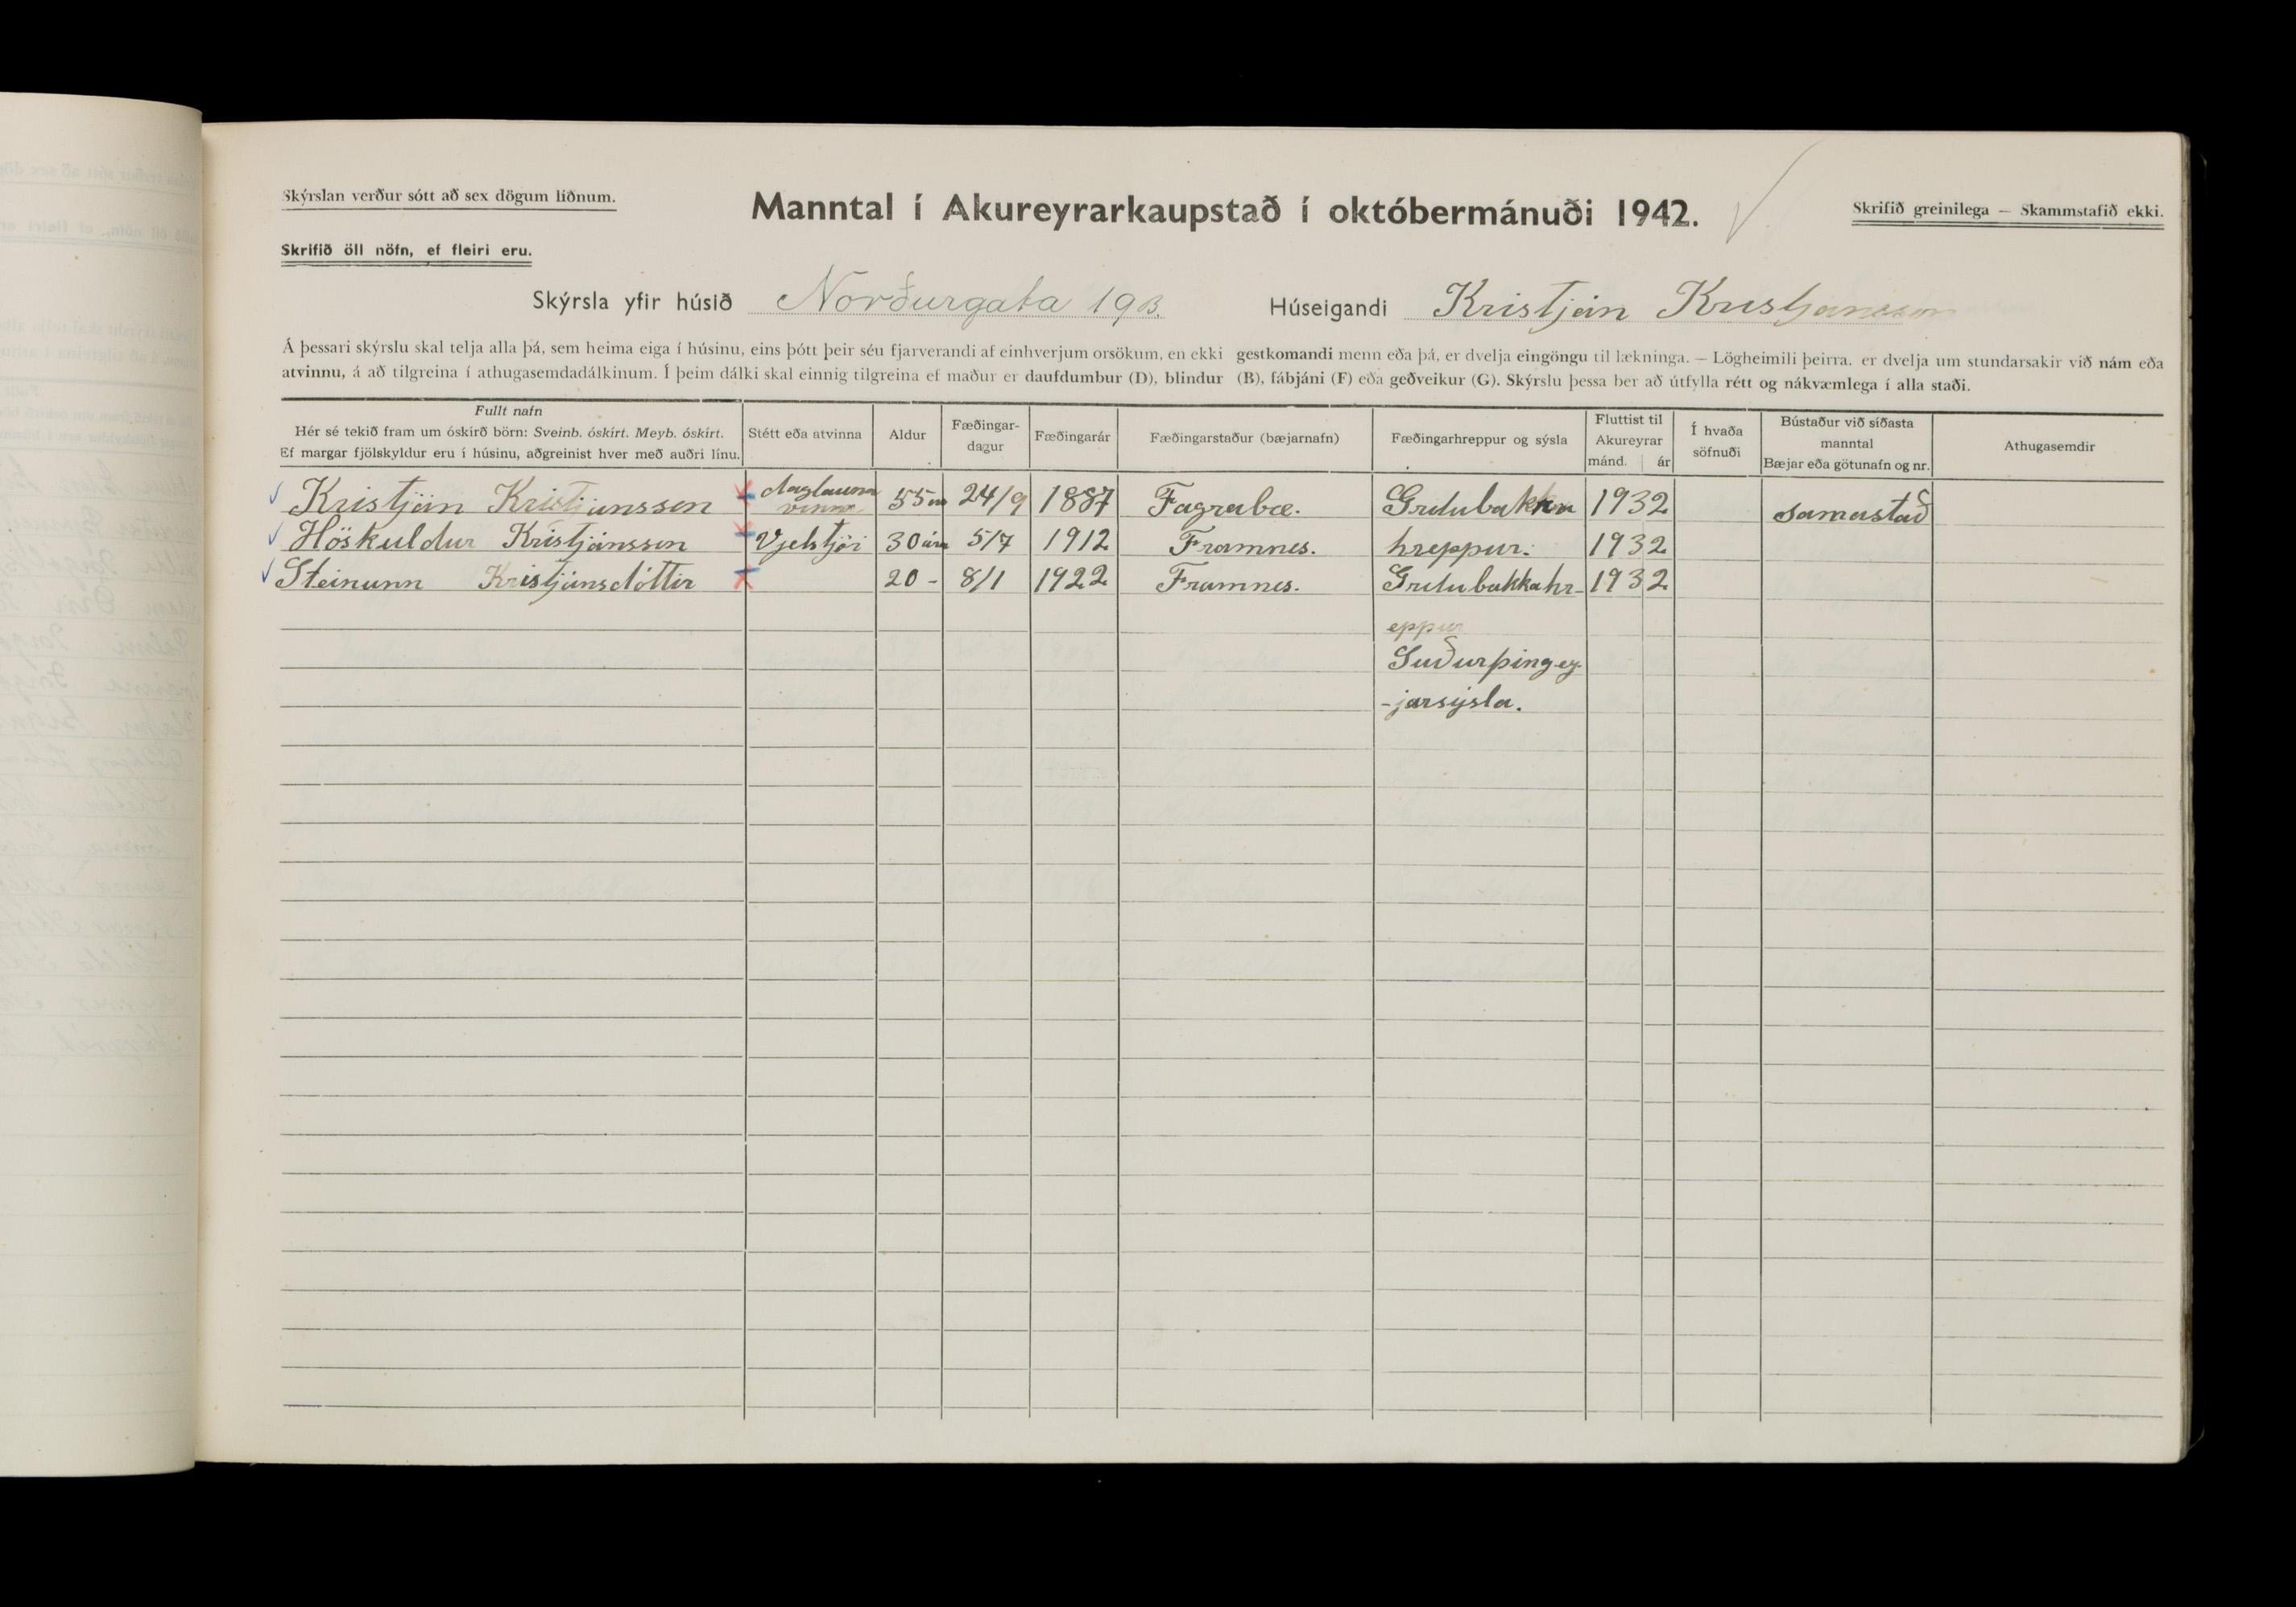 Skýrslan verður sótt að sex dögum liðnum.
Manntal í Akureyrarkaupstað í októbermánuði 1942.
Skrifið greinilega — Skammstafið ekki.
Skrifið öll nöfn, ef fleiri eru.
Skýrsla yfir húsið Norðurgata 19B. Húseigandi Kristján Kristjansson
Á þessari skýrslu skal telja alla þá, sem heima eiga í húsinu, eins þótt þeir séu fjarverandi af einhverjum orsökum, en ekki gestkomandi menn eða þá, er dvelja eingöngu til lækninga. — Lögheimili þeirra. er dvelja um stundarsakir við nám eða
atvinnu, á að tilgreina í athugasemdadálkinum. Í þeim dálki skal einnig tilgreina ef maður er daufdumbur (D), blindur (B), fábjáni (F) eða geðveikur (G). Skýrslu þessa ber að útfylla rétt og nákvæmlega í alla staði.
Fullt nafn
Hér sé tekið fram um óskírð börn: Sveinb. óskírt. Meyb. óskírt.
Ef margar fjölskyldur eru í húsinu, aðgreinist hver með auðri línu.
Stétt eða atvinna
Aldur
Fæðingar-
dagur
Fæðingarár
Fæðingarstaður (bæjarnafn)
Fæðingarhreppur og sýsla
Fluttist til
Akureyrar
mánd. ár
Í hvaða
söfnuði
Bústaður við síðasta
manntal
Bæjar eða götunafn og nr.
Athugasemdir
Kristján Kristjánsson daglauna vinna 55 24/9 1887 Fagrabæ. Grítubakka 1932 samastað
Höskuldur Kristjánsson Vjelstjóri 30 ára 5/7 1912 Framnes. hreppur. 1932
Steinunn Kristjánsdóttir 20 - 8/1 1922 Framnes. Grítubakkahr- 1932
eppur
Suðurþingey
-jarsýsla.